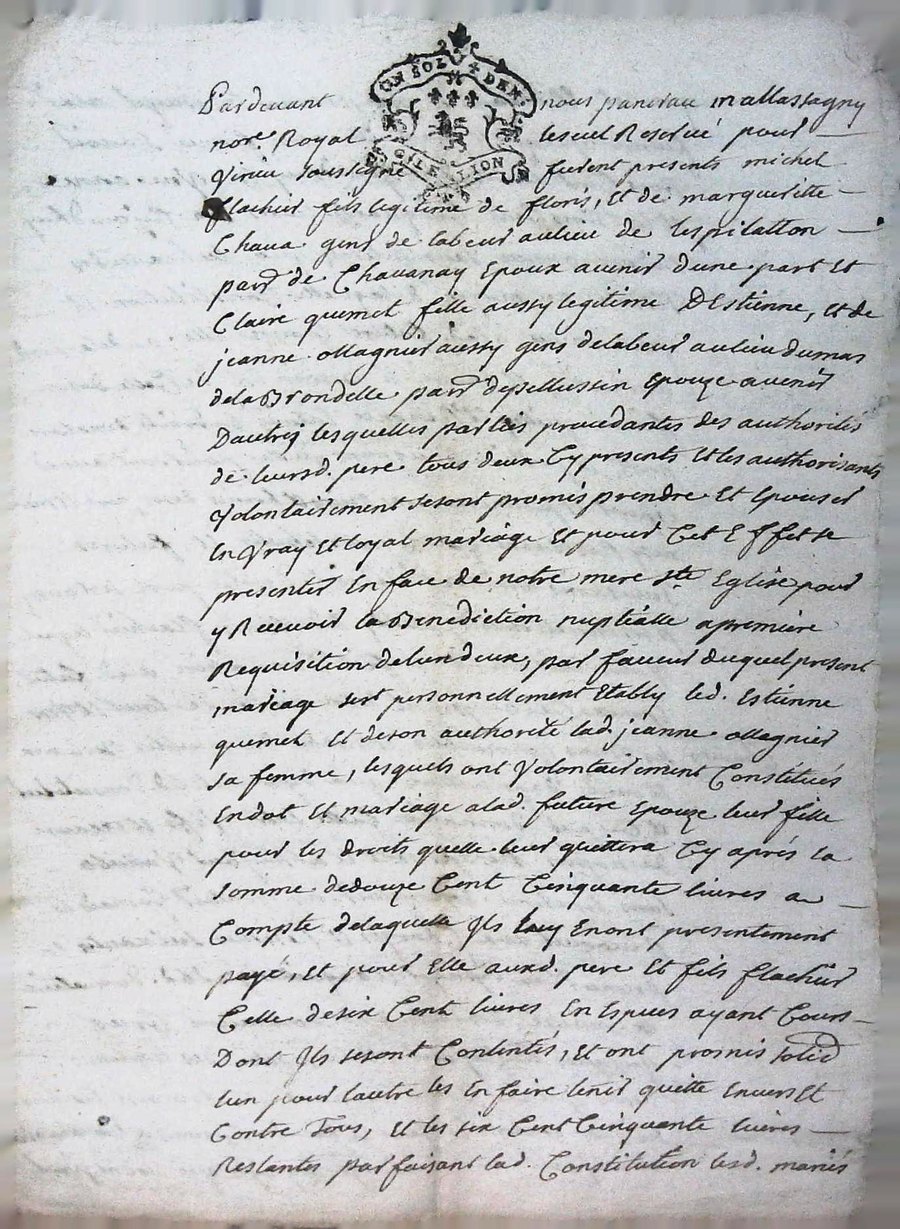 UN SOL 4 DEN.
G. LE LION
Pardevant nous pancrace mallassagny
nore. Royal leseul Reservé pour
Virieu soussigné furent presents michel
flachier fils legitime de floris, et de margueritte
Chava gens de labeur aulieu de lespilatton
parr. de Chavanay Epoux avenir dune part Et
Claire quemet fille aussy legitime DEstienne, et de
jeanne Magnier aussy gens delabeur aulieu dumas
dela Brondelle parr. depellussin Epouze avenir
Dautre; lesquelles parties procedantes des authorités
de leursd. pere tous deux Cy presents Et les authorisants
Volontairement sesont promis prendre Et Epouser
En Vray Et loyal mariage Et pour Cet Effet se
presenter En face de notre mere ste Eglise pour
y Recevoir la Benediction nuptialle apremiere
Requisition delun deux, par faveur duquel present
mariage sest personnellement Etably led. Estienne
quemet Et deson authorité lad. jeanne Magnier
sa femme, lesquels ont Volontairement Constitués
Endot Et mariage alad. future Epouze leur fille
pour les droits quelle leur quittera Cy aprés la
somme dedouze Cent Cinquante livres a
Compte delaquelle Ils luy Enont presentement
payé, Et pour Elle auxd. pere Et fils flachier
Celle desix Cent livres En Especes ayant Cours
Dont Ils sesont Contentés, Et ont promis solid
lun pour lautre les En faire tenir quitte Envers Et
Contre Tous, Et les six Cent Cinquante livres
Restantes parfaisant lad. Constitution lesd. mariés